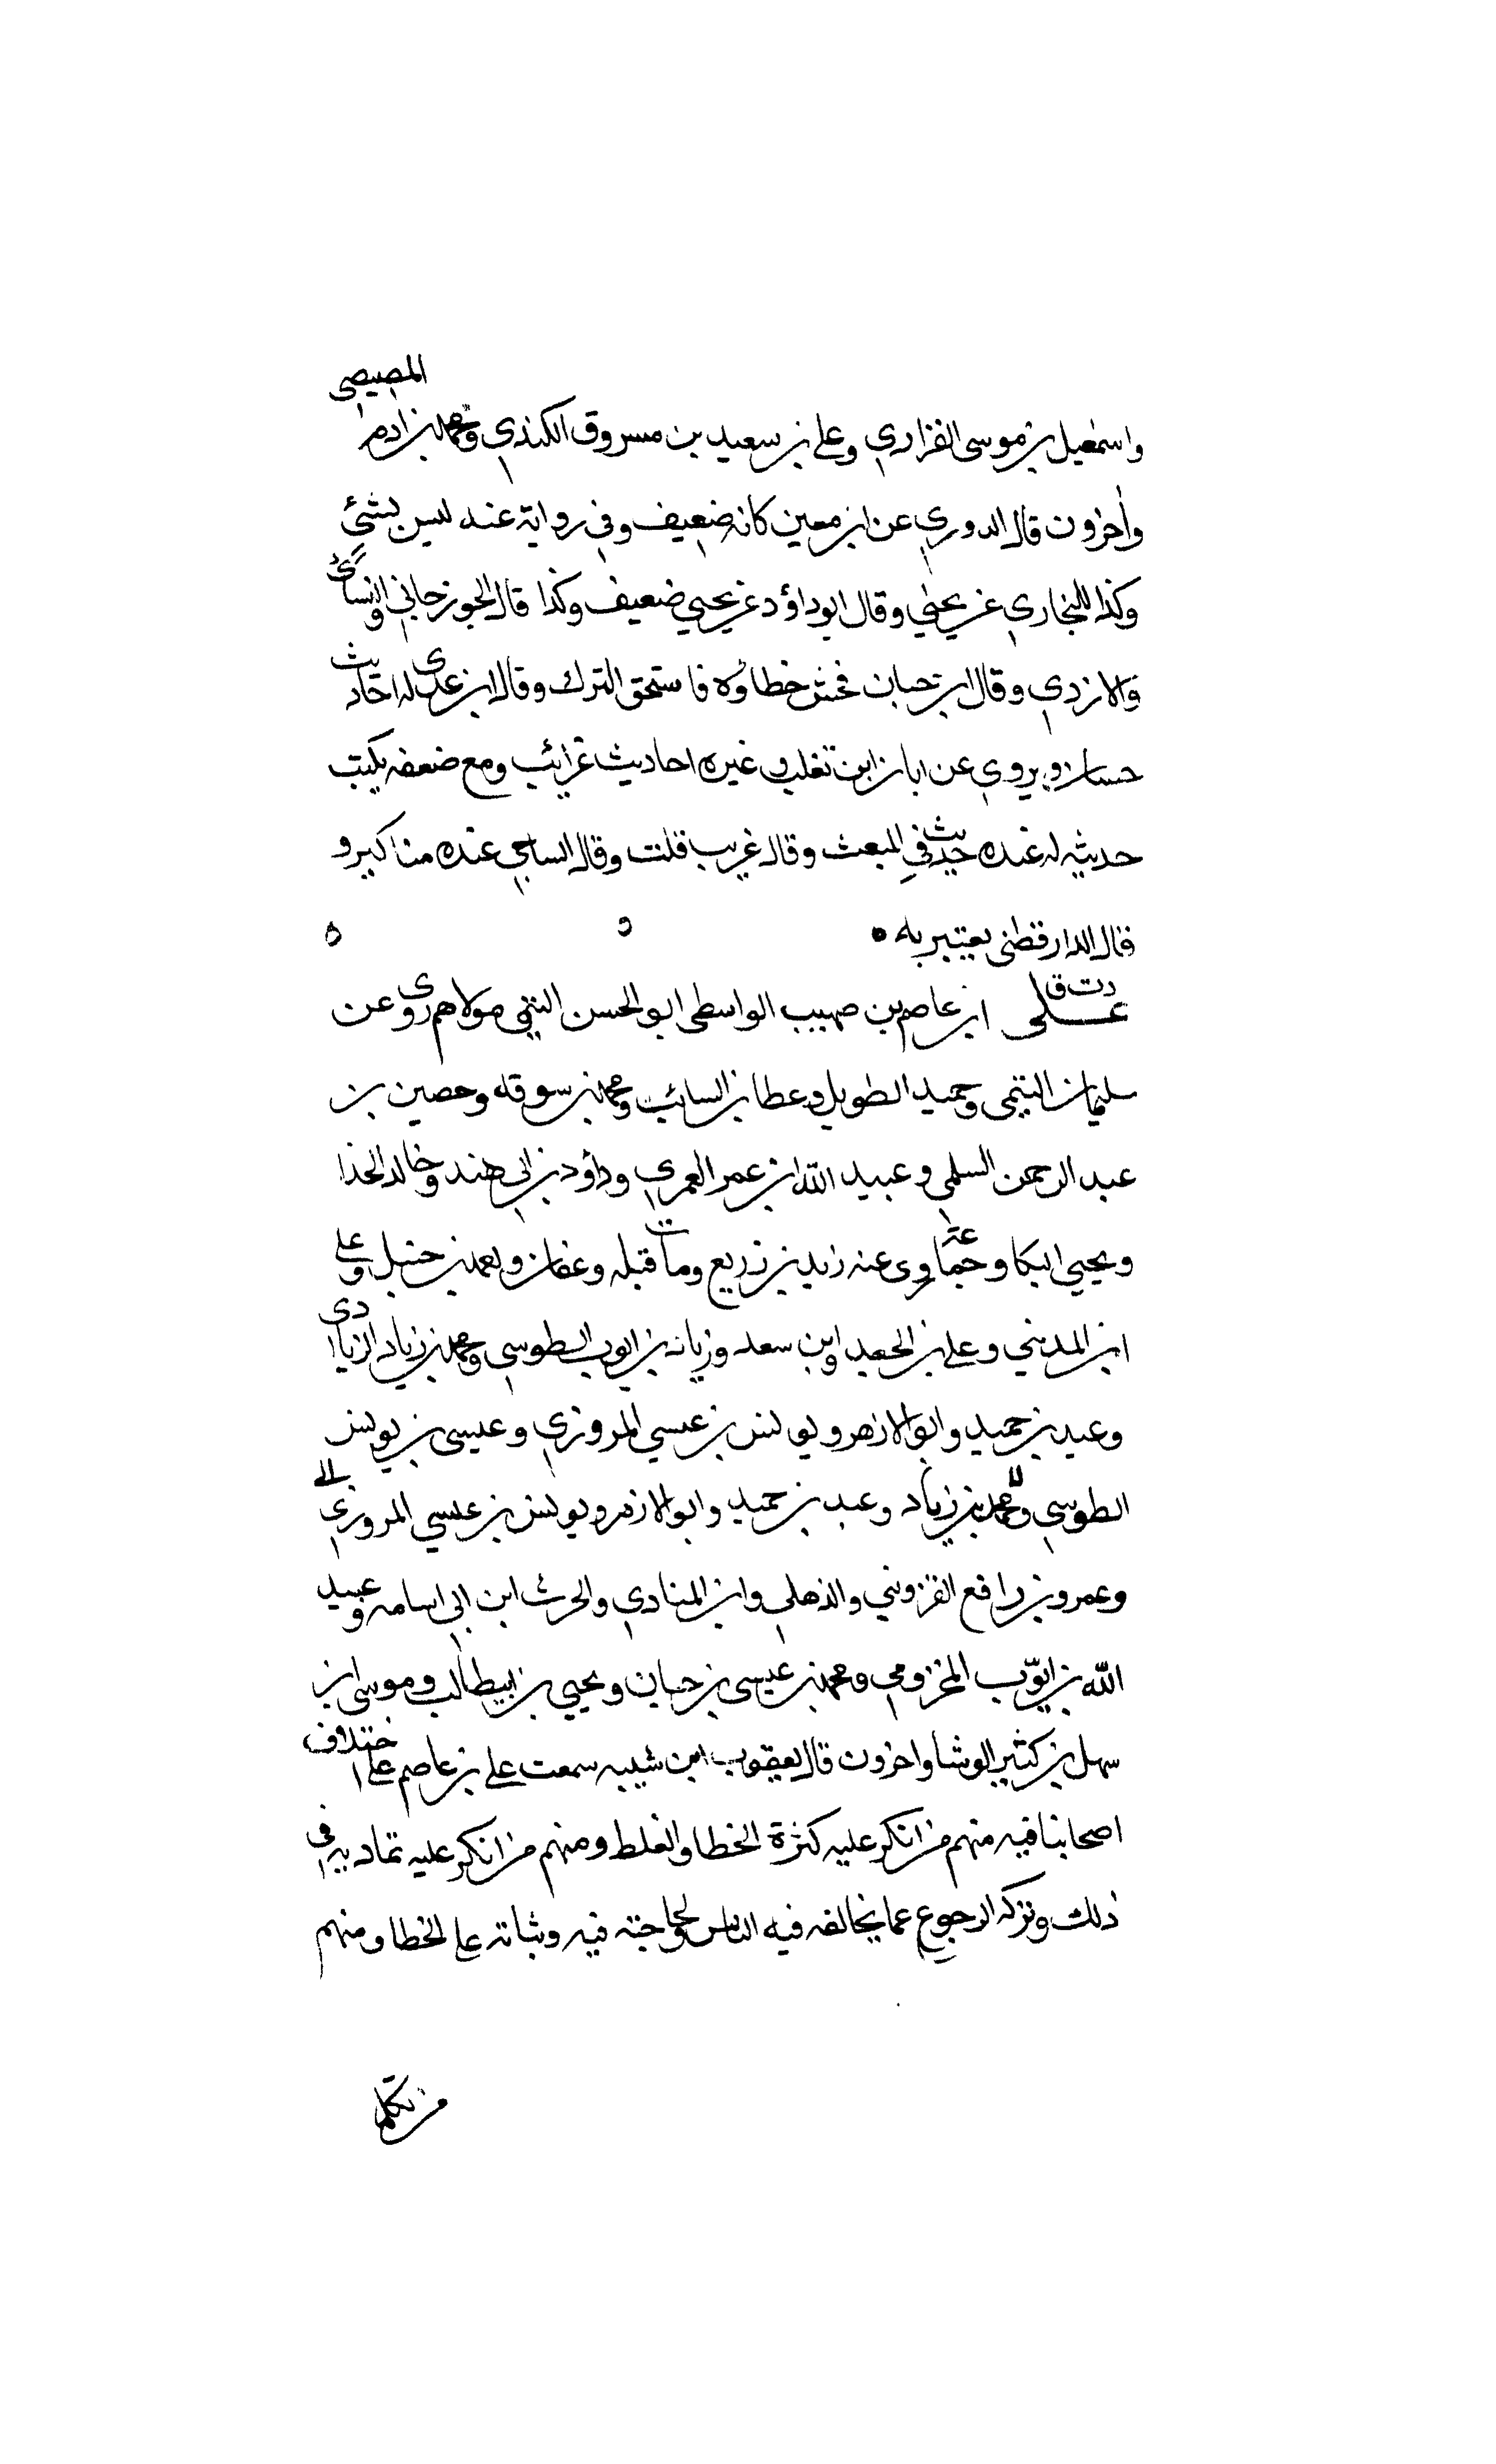 واسمعيل بن موسى الفزاري وعلي بن سعيد بن مسروق الكندي ومحمد بن ادم المصيصى
واخرون قال الدوري عن ابن معين كانه ضعيف وفي رواية عنه ليس بشئ
وكذا للبخاري عن يحيى وقال ابو داؤد عن يحيي ضعيف وكذا قال الجوزجاني والنسائ
والازدي وقال ابن حبان فحش خطاؤه فاستحق الترك وقال ابن عدى له احاديث
حسان ويروي عن ابان ابن تغلب وغيره احاديث غرائب ومع ضعفه يكتب
حديثه له عنده حديث في المبعث وقال غريب قلت وقال الساجي عنده مناكير و
قال الدارقطنى يعتبر به ه
د ت ق
علي ابن عاصم بن صهيب الواسطى ابو الحسن التيمي مولاهم روى عن
سليمان التيمى وحميد الطويل وعطا بن السائب ومحمد بن سوقه وحصين بن
عبد الرحمن السلمي وعبيد الله ابن عمر العمري وداؤد بن ابي هند وخالد الحذا
ويحيي البكا وجماعة وى عنه زيد بن زريع ومات قبله وعفان واحمد بن حنبل وعلي
ابن المديني وعلي بن الجعد وابن سعد وزياد بن ايوب الطوسي ومحمد بن زياد الزيادى
وعبد بن حميد وابو الازهر ويونس بن عيسي المروزي وعيسى بن يونس
الطوسي ومحمد بن زياد وعبد بن حميد وابو الازهر ويونس بن عيسي المروزي
وعمرو بن رافع القزويني والذهلي وابن المنادي والحرث ابن ابي اسامه وعبيد
الله بن ايوب المخزومي ومحمد بن عيسى بن حبان ويحيي بن ابيطالب وموسى ابن
سهل بن كثير الوشا واخرون قال يعقوب ابن شيبه سمعت علي بن عاصم على اختلاف
اصحابنا فيه منهم من انكر عليه كثرة الخطا والغلط ومنهم من انكر عليه تماديه في
ذلك وتركه الرجوع عما يخالفه فيه الناس ولجاجته فيه وثباته على الخطا ومنهم
من تكلم